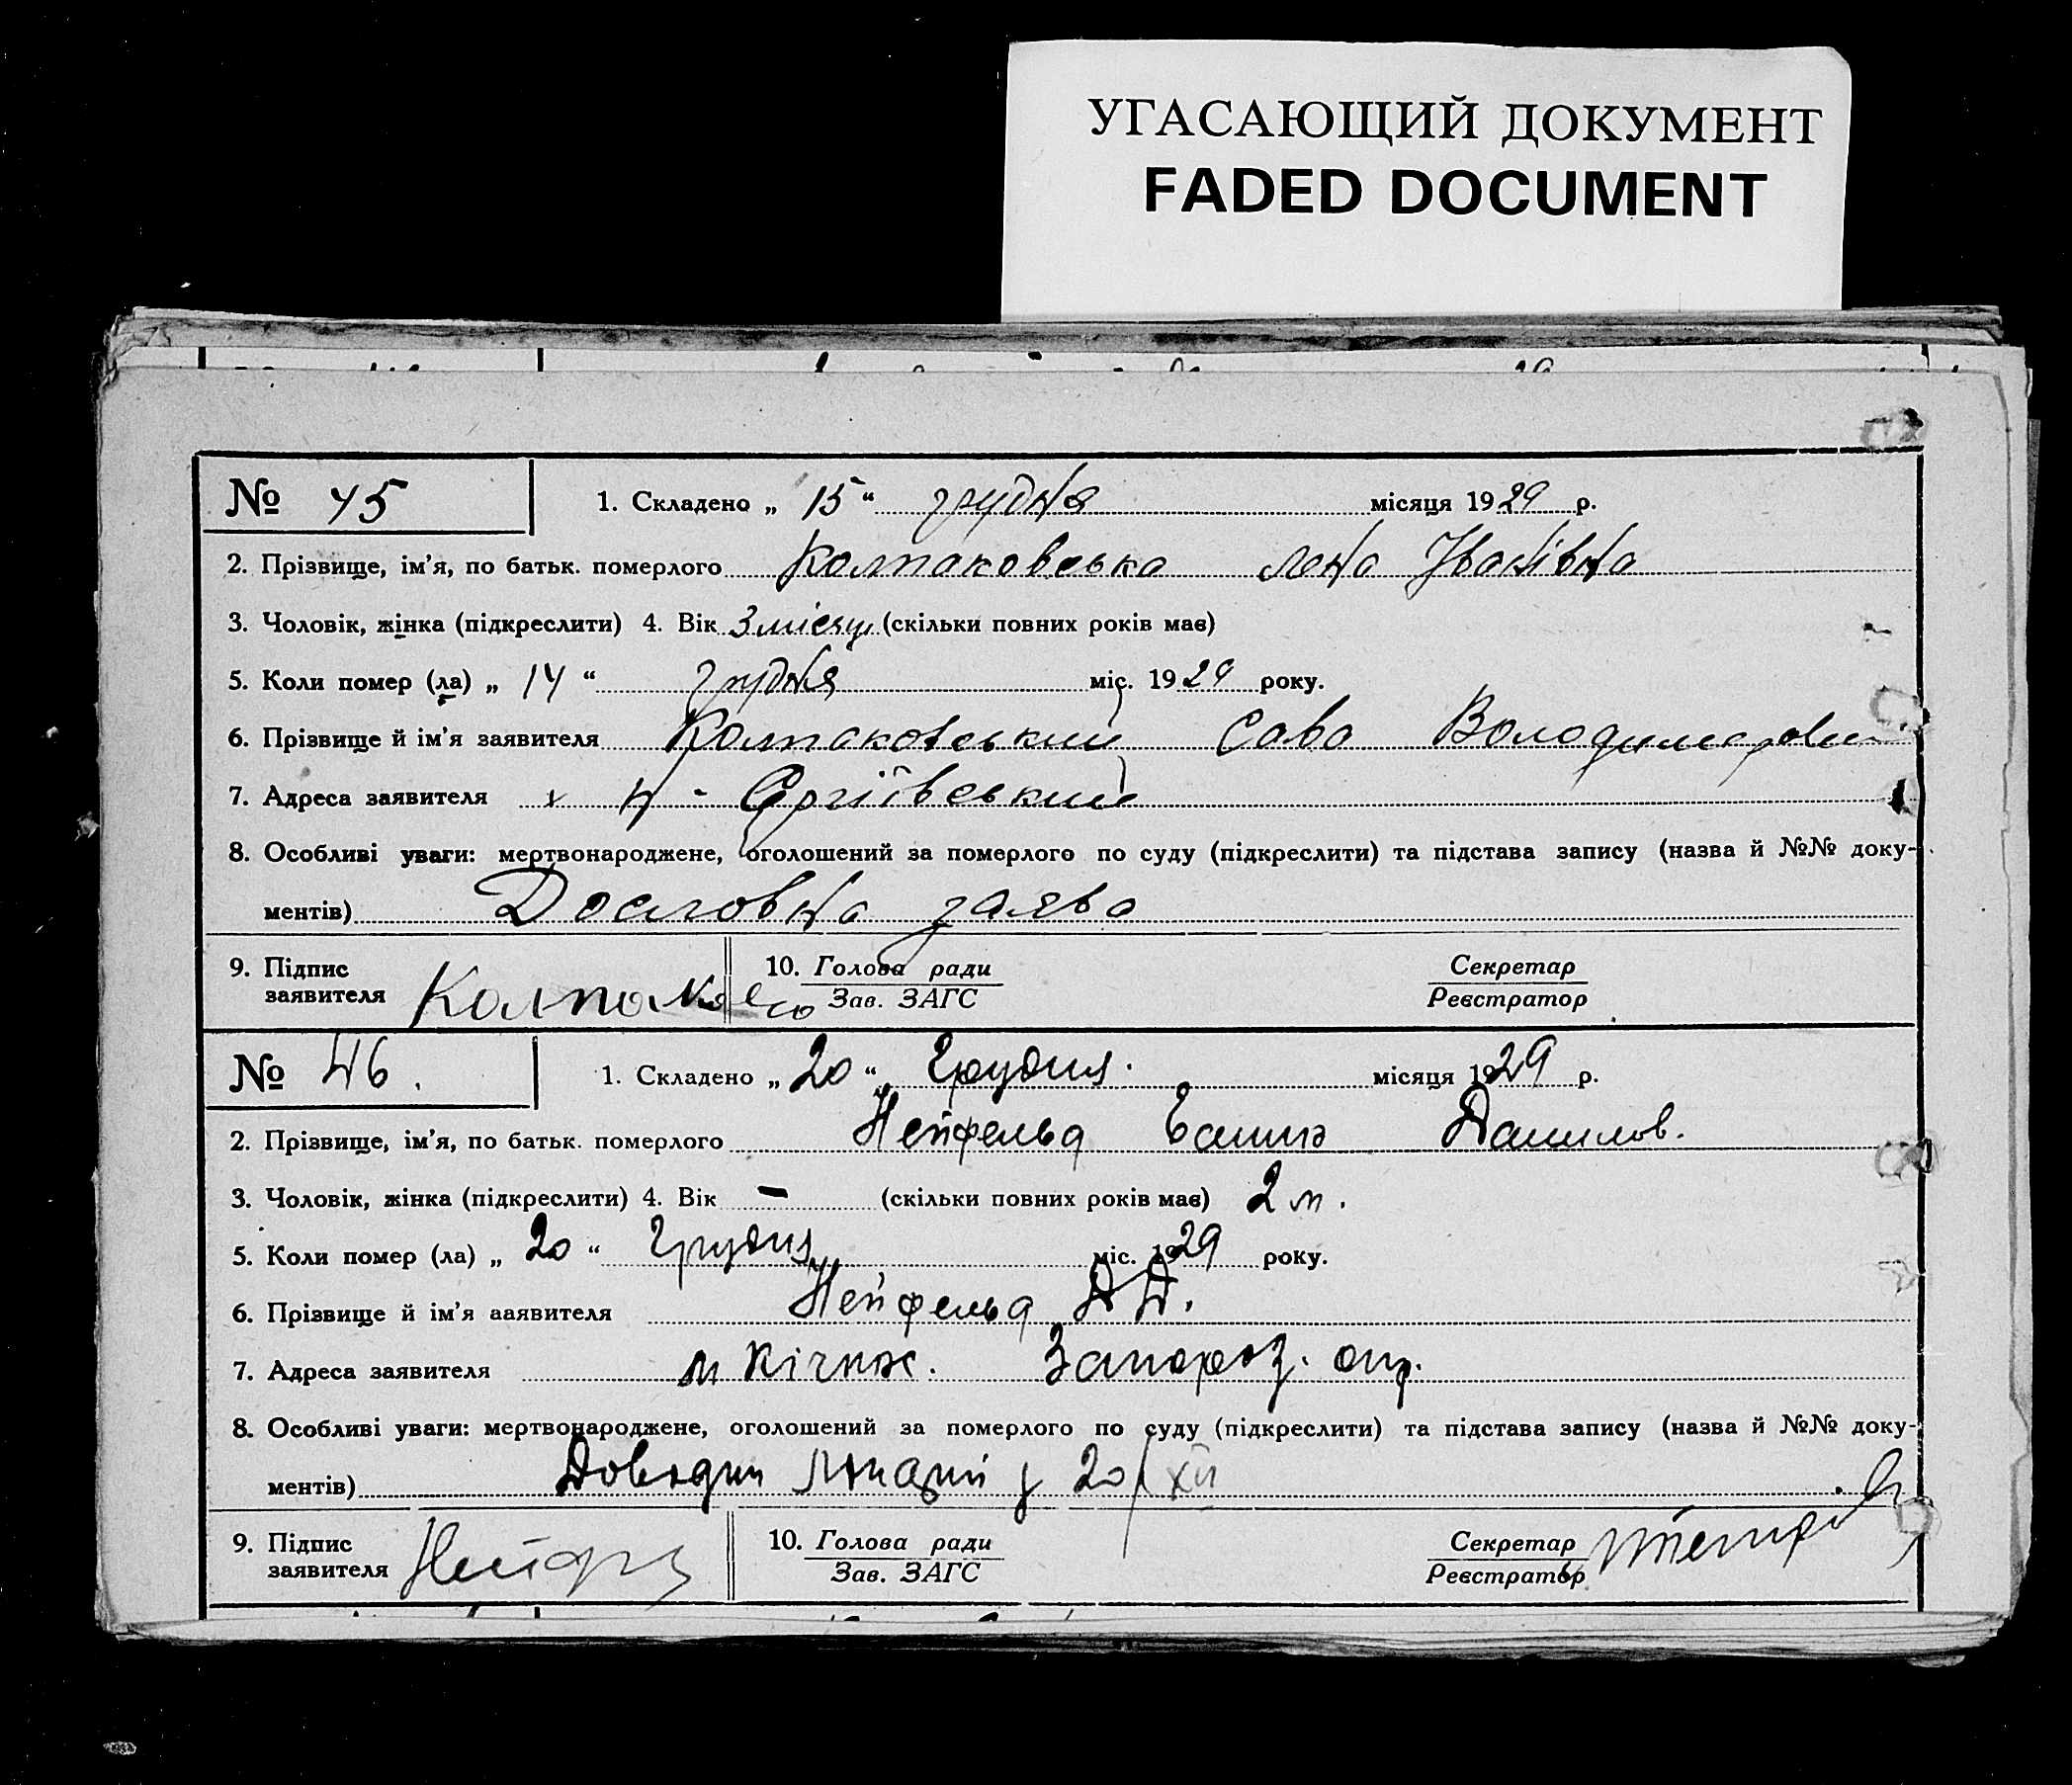 УГАСАЮЩИЙ ДОКУМЕНТ
FADED DOCUMENT
№ 45 1. Складено „ 15 “ грудня місяця 1929 р.
2. Прізвище, ім’я, по батьк. померлого Колпаковська Лєна Іванівна
3. Чоловік, жінка (підкреслити) 4. Вік 3 місяц (скільки повних років має)
5. Коли помер (ла) „ 14 “ грудня міс. 1929 року.
6. Прізвище й ім’я заявителя Колпаковський Сава Володимирович
7. Адреса заявителя х Н - Сергіївський
8. Особливі уваги: мертвонароджене, оголошений за померлого по суду (підкреслити) та підстава запису (назва й №№ доку-
ментів) Дословна заява
9. Підпис 10. Голова ради Секретар
заявителя Зав. ЗАГС Реєстратор
№ 46. 1. Складено „ 20 “ Грудня. місяця 1929 р.
2. Прізвище, ім’я, по батьк. померлого Нейфельд Данилов.
3. Чоловік, жінка (підкреслити) 4. Вік - (скільки повних років має) 2 м.
5. Коли помер (ла) „ 20 “ Грудня міс. 1929 року.
6. Прізвище й ім’я заявителя Нейфельд Д.
7. Адреса заявителя м Кічкас. Запороз. окр.
8. Особливі уваги: мертвонароджене, оголошений за померлого по суду (підкреслити) та підстава запису (назва й №№ доку-
ментів) 20/XII
9. Підпис 10. Голова ради Секретар
заявителя Зав. ЗАГС Реєстратор